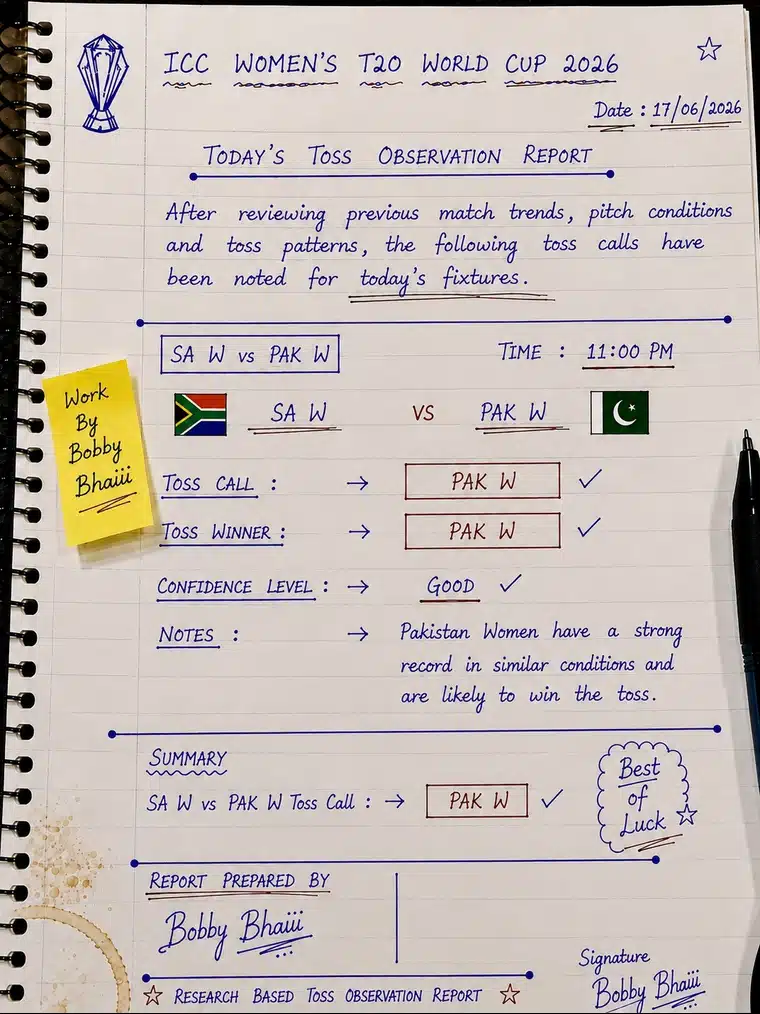 ICC WOMEN'S T20 WORLD CUP 2026
Date : 17/06/2026
TODAY'S TOSS OBSERVATION REPORT
After reviewing previous match trends, pitch conditions
and toss patterns, the following toss calls have
been noted for today's fixtures.
SA W vs PAK W
TIME : 11:00 PM
SA W VS PAK W
Work
By
Bobby
Bhaiii
TOSS CALL : → PAK W ✓
TOSS WINNER : → PAK W ✓
CONFIDENCE LEVEL : → GOOD ✓
NOTES : → Pakistan Women have a strong
record in similar conditions and
are likely to win the toss.
SUMMARY
SA W vs PAK W Toss Call : → PAK W ✓
Best
of
Luck
REPORT PREPARED BY
Bobby Bhaiii
Signature
Bobby Bhaiii
☆ RESEARCH BASED TOSS OBSERVATION REPORT ☆